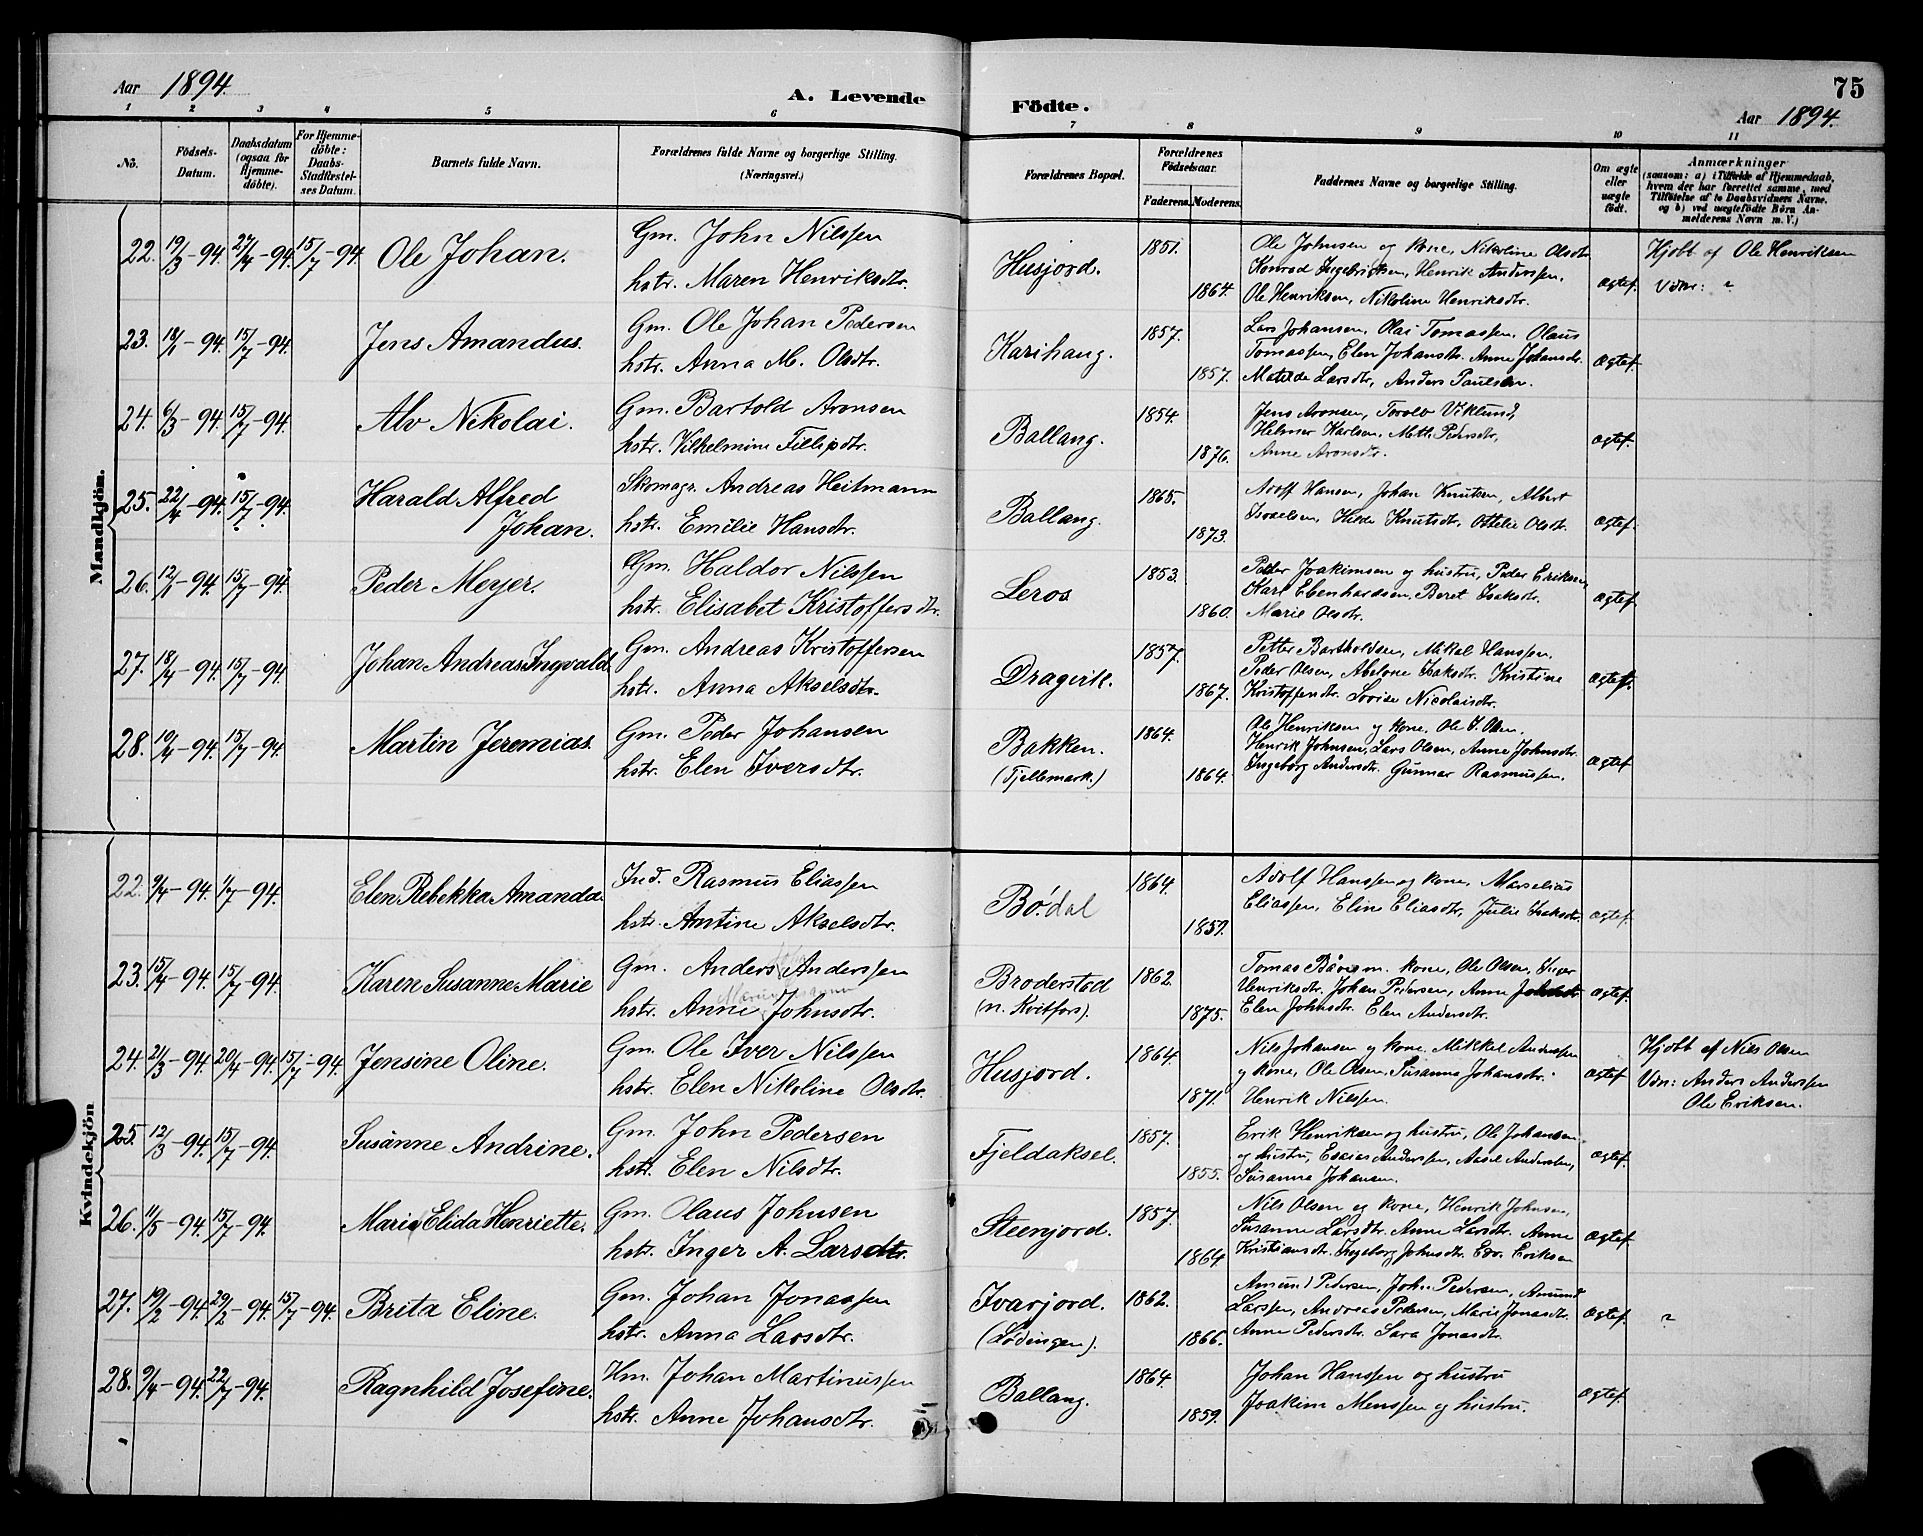 75
Aar 1894.
A. Levende Födte.
Aar 1894.
1 2 3 4 5 6 7 8 9 10 11
No.
Födsels-Datum.
Daabsdatum (ogsaa for Hjemmedöbte).
For Hjemmedöbte: Daabs-Stadfæstelses Datum.
Barnets fulde Navn.
Forældrenes fulde Navne og borgerlige Stilling. (Næringsvei.)
Forældrenes Bopæl.
Forældrenes Födselsaar.
Faderens. Moderens.
Faddernes Navne og borgerlige Stilling.
Om ægte eller uægte födt.
Anmærkninger (saasom: a) i Tilfælde af Hjemmedaab, hvem der har forrettet samme, med Tilföielse af to Daabsvidners Navne. og b) ved uægtefödte Börn Anmelderens Navn m. V.)
Mandkjön.
22. 19/3-94. 27/4-94. 15/7-94. Ole Johan. Gm. John Nilssen Husjord. 1851. Ole Johnsen og kone, Nikoline Olsdtr. Hjdbt af Ole Henriksen
hstr. Maren Henriksdtr. 1864. Konrad Ingebrigtsen, Henrik Anderssen, ægtef. Vidn: "
Ole Henriksen, Nikoline Henriksdtr.
23. 18/1-94. 15/7-94. Jens Amandus. Gm. Ole Johan Pedersen Karihaug. 1857. Lars Johansen, Olai Tomassen, Olaus
hstr. Anna M. Olsdtr. 1857. Tomassen, Elen Johansdtr. Anne Johansdtr. ægtef.
Matilde Larsdtr, Anders Paulsen.
24. 6/3-94. 15/7-94. Alv Nikolai. Gm. Bartold Aronsen Ballang. 1854. Jens Aronsen, Torolv Viklund,
hstr. Vilhelmine Fillipdtr. 1876. Helmer Karlsen, Mette Pedersdtr, ægtef.
Anne Aronsdtr.
25. 22/4-94. 15/7-94. Harald Alfred Johan. Skomagr. Andreas Heitmann Ballang. 1865. Adolf Hansen, Johan Knutsen, Albert
hstr. Emilie Hansdtr. 1873. Israelsen, Hilda Knutsdtr, Ottelie Olsdtr. ægtef.
26. 12/1-94. 15/7-94. Peder Meyer. Gm. Haldor Nilssen Leros 1853. Peder Joakimsen og hustru, Peder Eriksen,
hstr. Elisabet Kristoffersdtr. 1860. Karl Ebenhardsen, Beret Isaksdtr. ægtef.
Marie Olsdtr.
27. 18/4-94. 15/7-94. Johan Andreas Ingvald. Gm. Andreas Kristoffersen Dragvik. 1857. Petter Bartholdsen, Mikal Hanssen,
hstr. Anna Akselsdtr. 1867. Peder Olsen, Abelone Isaksdtr. Kristine ægtef.
Kristoffersdtr. Lovise Nicolaisdtr.
28. 10/4-94. 15/7-94. Martin Jeremias. Gm. Peder Johansen Bakken. (Tjellemark.) 1864. Ole Henriksen og kone, Ole J. Olsen,
hstr. Elen Iversdtr. 1864. Henrik Johnsen, Lars Olsen, Anne Johnsdtr. ægtef.
Ingeborg Andersdtr. Gunnar Rasmussen.
Kvindekjön
22. 9/4-94. 1/7-94. Elen Rebekka Amanda. Ind. Rasmus Eliassen Bödal 1864. Adolf Hanssen og kone, Marselius
hstr. Antine Akselsdtr. 1859. Eliassen, Eline Eliasdtr, Julie Isaksdtr. ægtef.
23. 15/4-94. 15/7-94. Karen Susanne Marie Gm. Anders Anderssen Broderstad (n. Kvitfors). 1862. Tomas Bårsen m. kone, Ole Olsen, Inger
hstr. Anne Johnsdtr. 1875. Henriksdtr. Johan Pedersen, Anne ægtef.
Elen Johnsdtr. Elen Andersdtr.
24. 21/3-94. 20/4-94. 15/7-94. Jensine Oline. Gm. Ole Iver Nilssen Husjord. 1864. Nils Johansen og kone. Mikkel Anderssen Hjdbt af Nils Olsen
hstr. Elen Nikoline Olsdtr. 1871. og kone, Ole Olsen, Susanna Johansdtr. ægtef. Vidn: Anders Anderssen
Henrik Nilssen. Ole Eriksen.
25. 12/3-94. 15/7-94. Susanne Andrine. Gm. John Pedersen Fjeldaksel. 1857. Erik Henriksen og hustru, Ole Johansen
hstr. Elen Nilsdtr. 1855. og hustru, Esaias Anderssen, Aasel Andersen, ægtef.
Susanna Johansen.
26. 11/5-94. 15/7-94. Marie Elida Henriette. Gm. Olaus Johnsen Steenjord. 1857. Nils Olsen og kone, Henrik Johnsen,
hstr. Inger A. Larsdtr. 1864 Susanne Larsdtr. Anne Larsdtr. Anne ægtef.
Kristiansdtr. Ingeborg Johnsdtr. Edv. Eriksen
27. 19/2-94. 29/2-94. 15/7-94. Brita Eline. Gm. Johan Jonassen Ivarjord. (Lødingen). 1862. Amund Pedersen, John Pedersen, Amund
hstr. Anna Larsdtr. 1866. Larssen, Andreas Pedersen, Marie Jonasdtr. ægtef. "
Anne Pedersdtr. Sara Jonasdtr.
28. 9/4-94. 22/7-94. Ragnhild Josefine. Hm. Johan Martinussen Ballang. 1864. Johan Hanssen og hustru
hstr. Anne Johansdtr. 1859. Joakim Menssen og hustru. ægtef.